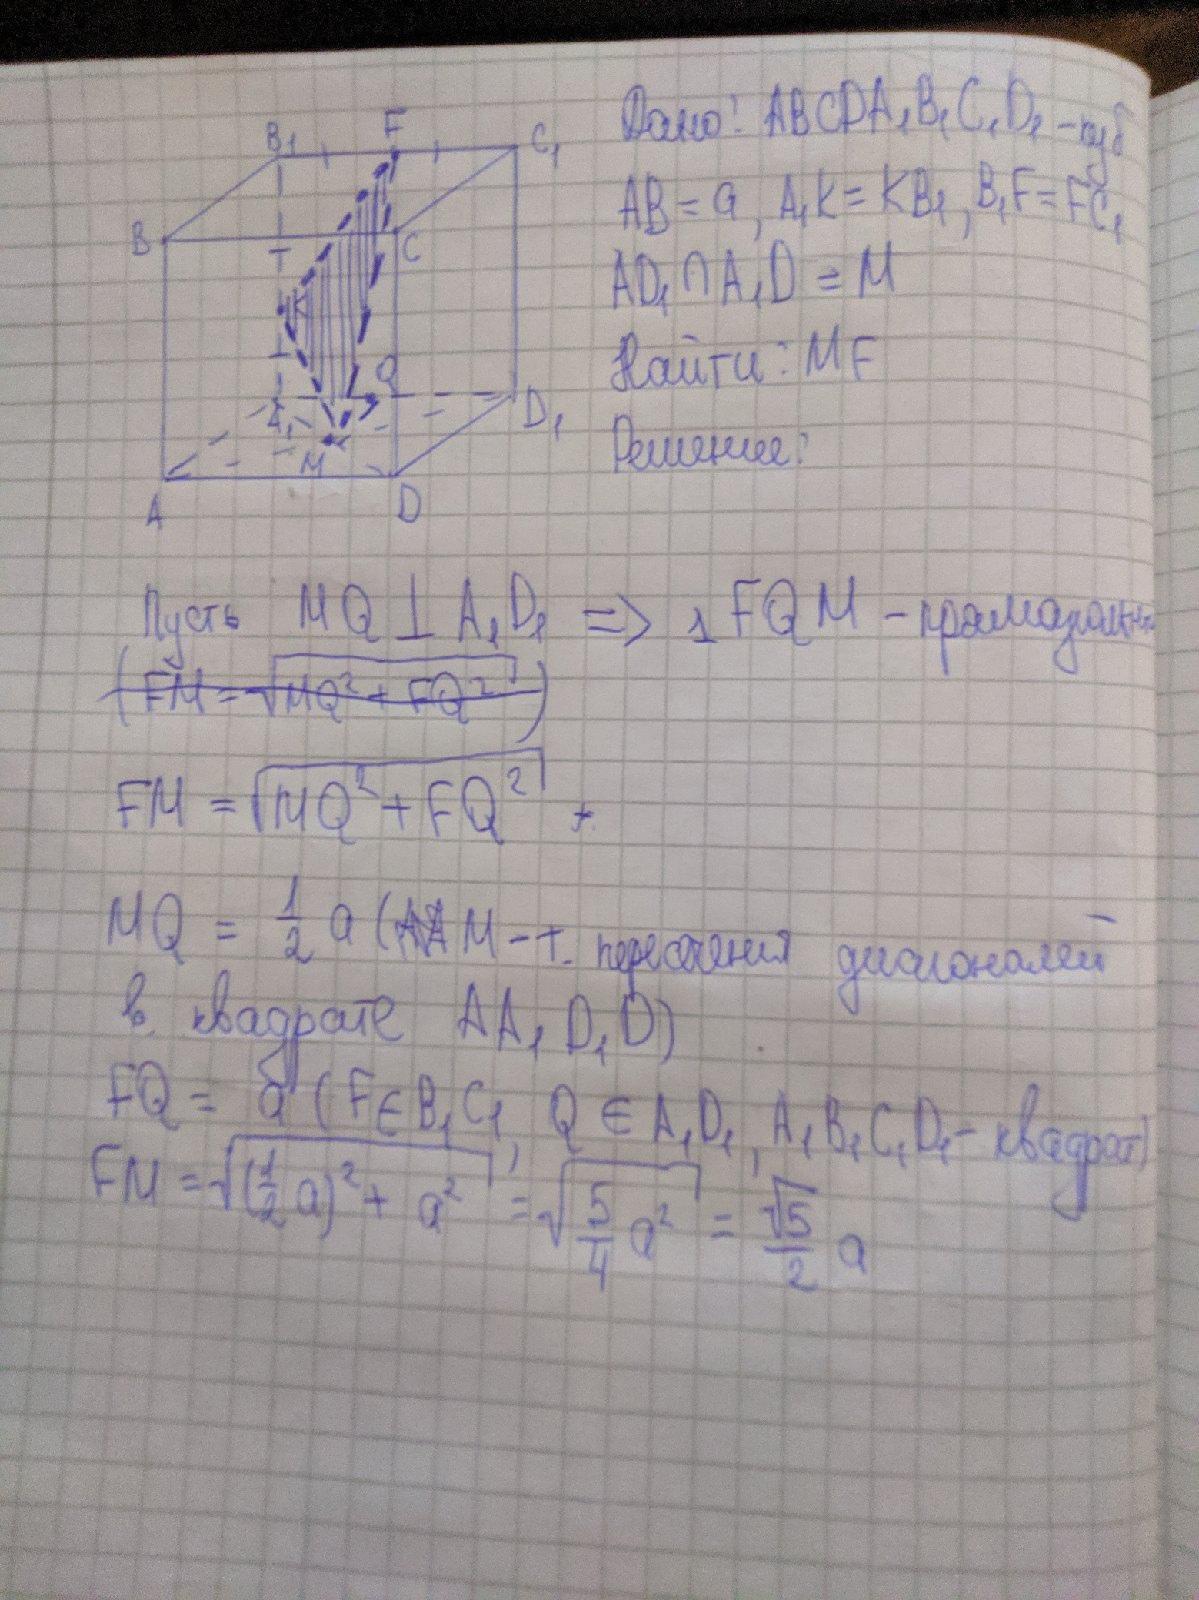 B₁ F C₁
B C
K
Q
A₁ D₁
M
A D
Дано: ABCDA₁B₁C₁D₁ - куб
AB = a, A₁K = KB₁, B₁F = FC₁
AD₁ ∩ A₁D = M
Найти: MF
Решение:
Пусть MQ ⊥ A₁D₁ => △ FQM - прямоугольн
(FM = √MQ² + FQ²)
FM = √MQ² + FQ²
MQ = 1/2 a (M - т. пересечения диагоналей
в квадрате AA₁D₁D)
FQ = a (F ∈ B₁C₁, Q ∈ A₁D₁, A₁B₁C₁D₁ - квадрат)
FM = √(1/2 a)² + a² = √5/4 a² = √5/2 a